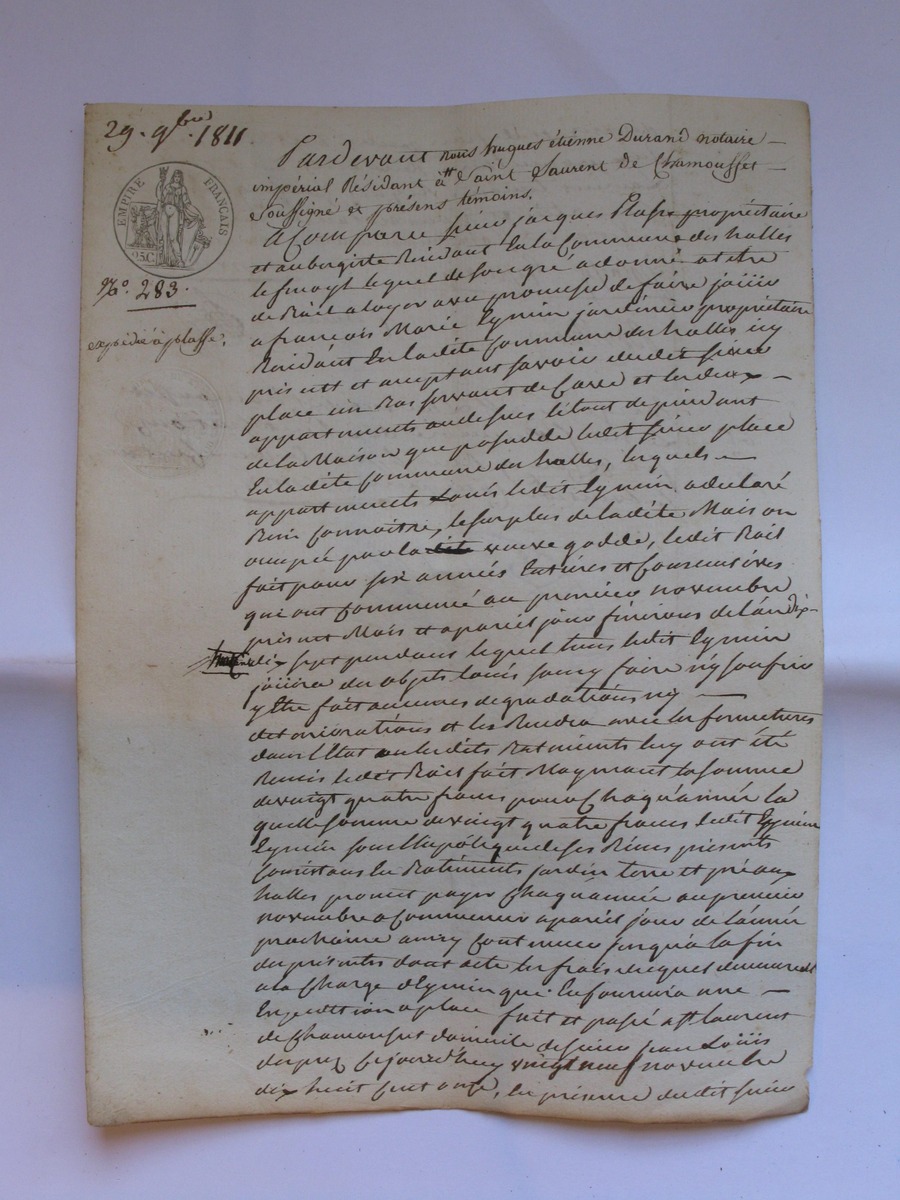 29. 9bre 1811
EMPIRE FRANÇAIS
25.C.
N°. 283.
expédié à plasse.
Pardevant nous hugues étienne Durand notaire
impérial Résidant à St Saint Laurent de Chamousset
Soussigné et présens témoins.
A Comparu sieur jacques Plasse propriétaire
et aubergiste Residant En la Commune des halles
lequel de son gré a donné a titre
de Bail a loyer avec promesse de faire jouir
a françois Marie Eymin jardinier propriétaire
Residant En ladite Commune des halles icy
présent et acceptant savoir dudit sieur
place un Bas servant de Cave et les deux
appartements au dessus le tout dependant
de la Maison que possede ledit sieur place
En ladite Commune des halles, lesquels
appartements Loués ledit Eymin a declaré
Bien Connaitre, le surplus de ladite Maison
occupé par la veuve godde, ledit Bail
fait pour six années Entieres et Consecutives
qui ont Commencé au premier novembre
présent Mois et apareil jour finirons de l'an dix
sept pendant lequel tems ledit Eymin
jouira des objets loués sans y faire ny souffrir
y être fait aucunes degradations ny
deteriorations et les Rendra avec les fermetures
dans l'Etat ou lesdits Batiments luy ont été
Remis ledit Bail fait Moyennant la somme
de vaingt quatre francs pour Chaqu'année la
quelle somme de vaingt quatre francs ledit Eymin
Eymin sous l'hypotéque de ses Biens présents
Consistans En Batiments jardin terre et pré aux
halles promet payer Chaqu'année au premier
novembre a Commencer apareil jour de l'année
prochaine ainsy Continuer jusqu'a la fin
des présentes dont acte les frais duquel demeurent
a la Charge d'Eymin qui En fournira une
Expedition a place fait et passé a St Laurent
de Chamousset domicile de sieur jean Loüis
duprez Ce jourd'huy vaingt neuf novembre
dix huit Cent onze, En présence dudit sieur